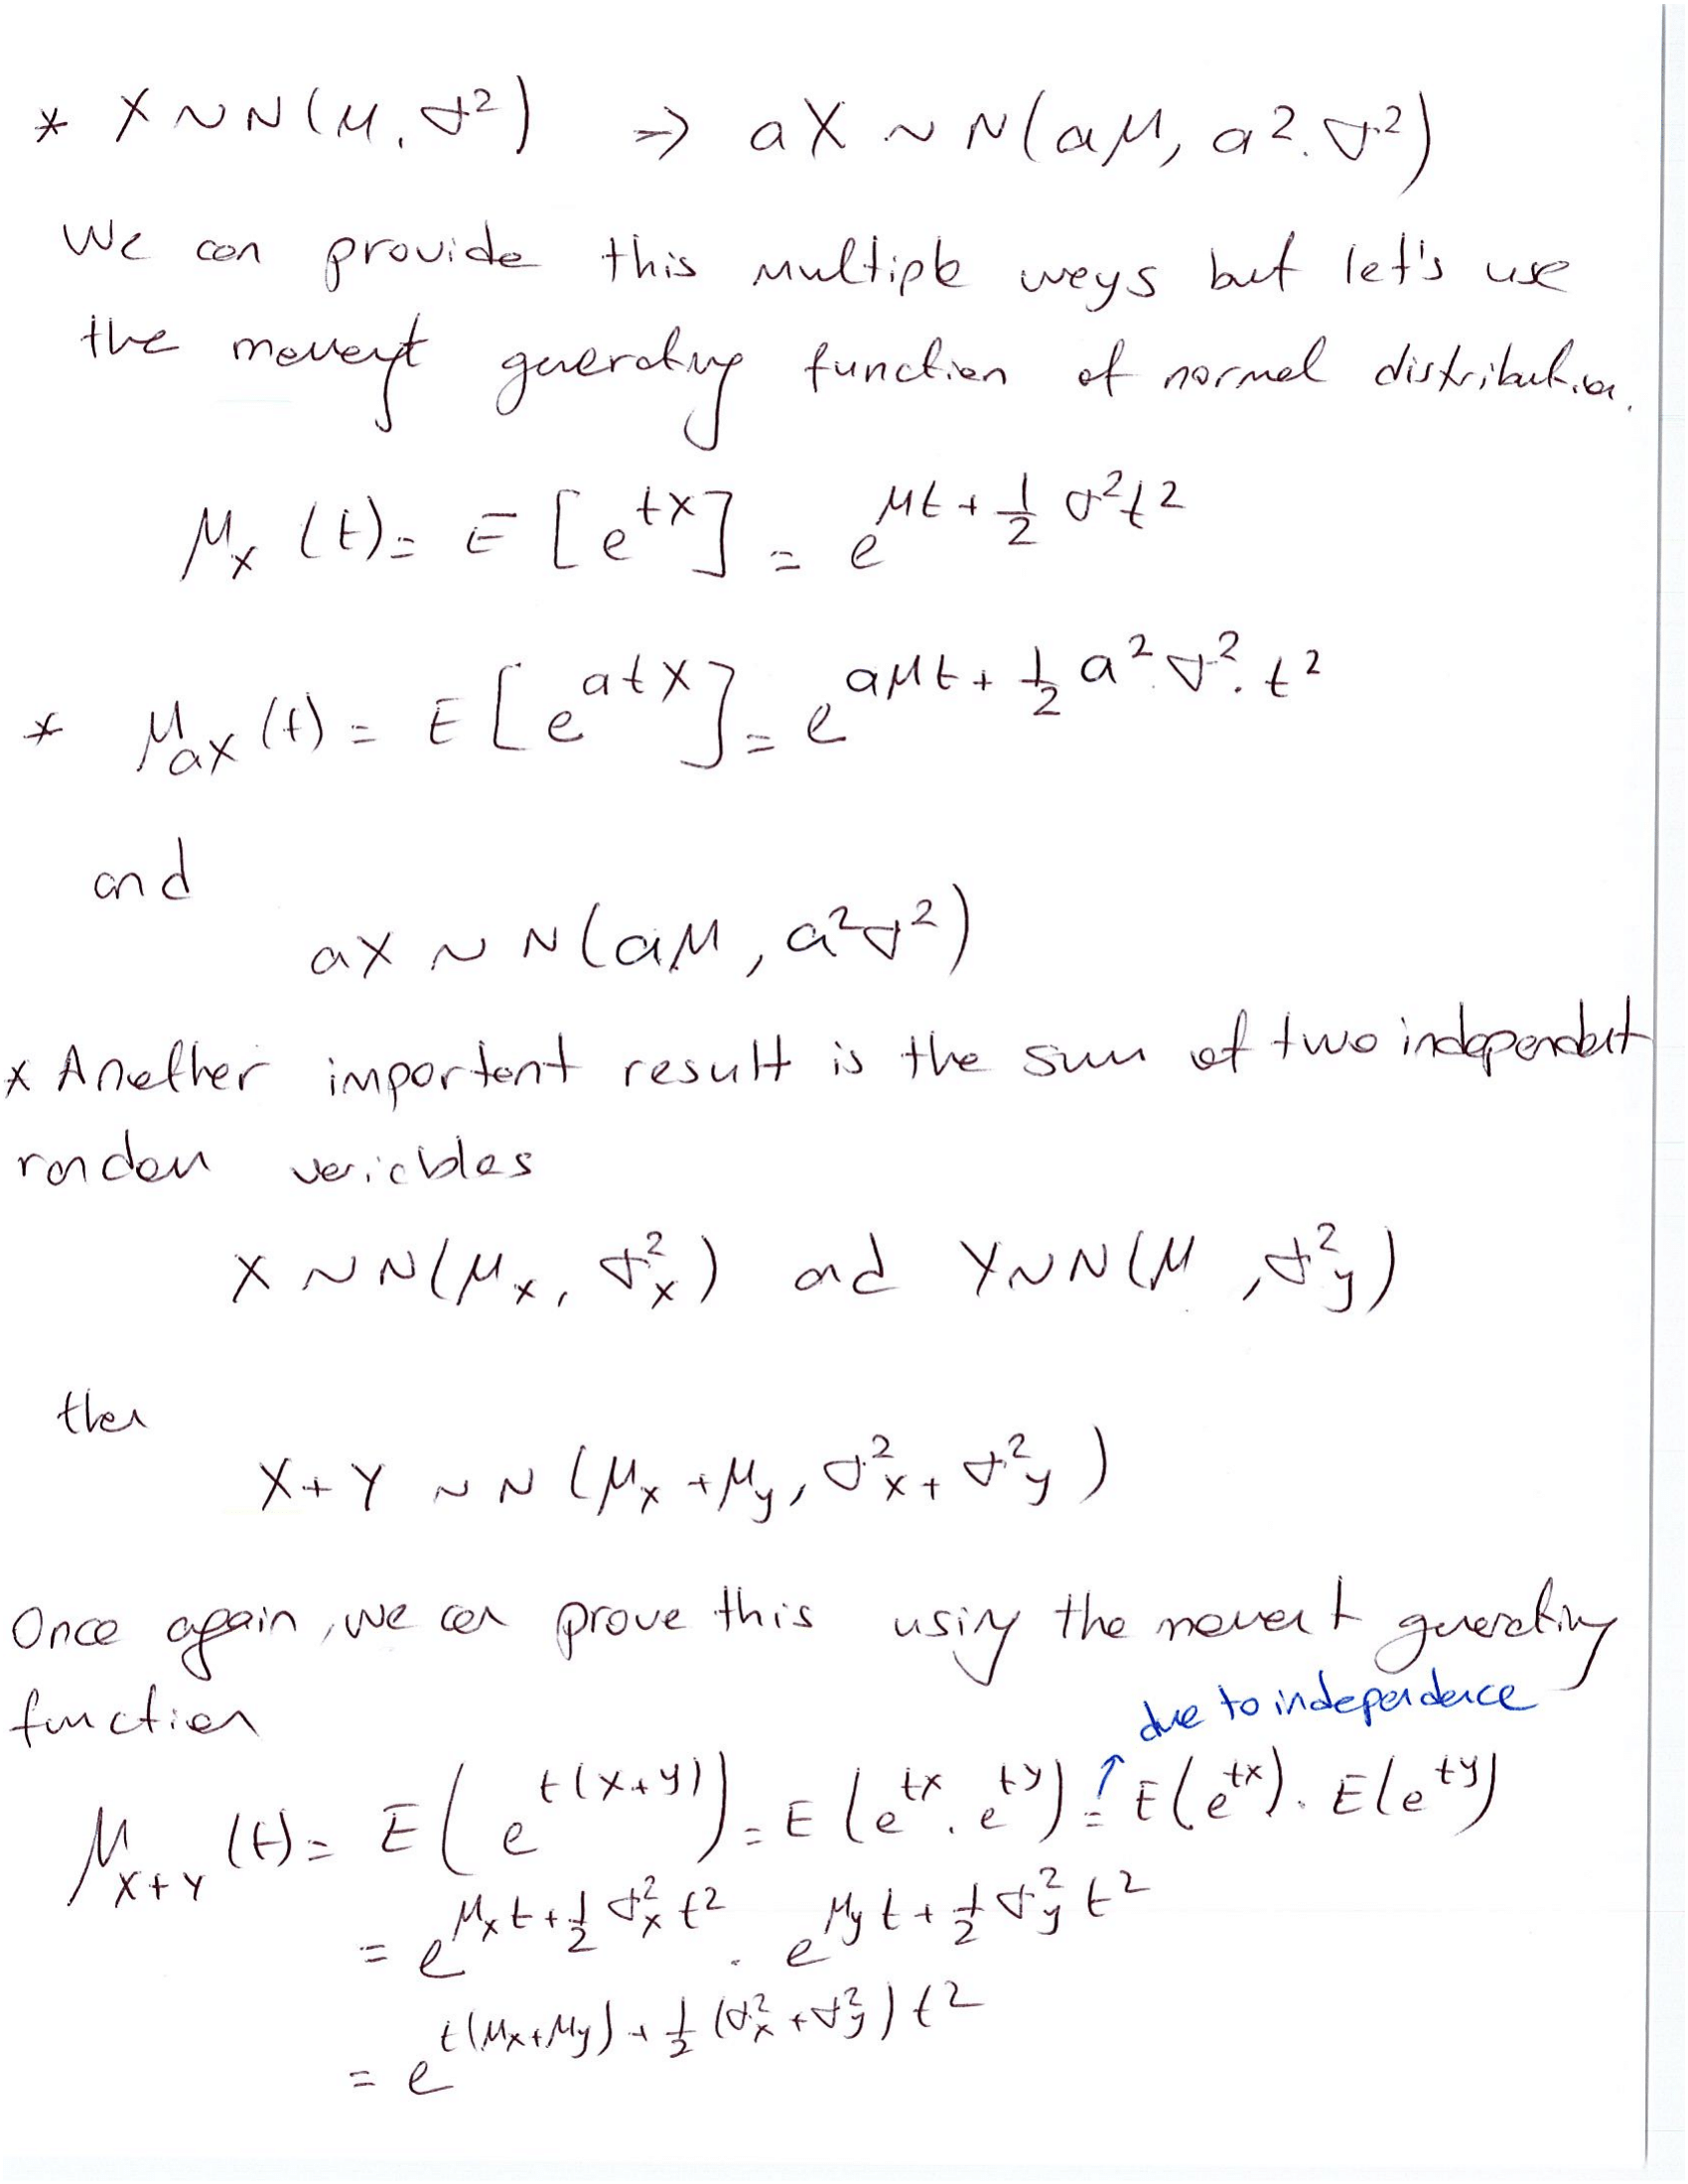 * X ~ N(μ, σ²) ⇒ aX ~ N(aμ, a².σ²)
We can provide this multiple ways but let's use
the moment generating function of normal distribution.
M_X (t) = E [e^{tX}] = e^{μt + 1/2 σ²t²}
* M_{aX} (t) = E [e^{atX}] = e^{aμt + 1/2 a².σ².t²}
and
aX ~ N(aμ, a²σ²)
* Another important result is the sum of two independent
random variables
X ~ N(μ_x, σ²_x) and Y ~ N(μ , σ²_y)
then
X+Y ~ N (μ_x + μ_y, σ²_x + σ²_y)
Once again, we can prove this using the moment generating
function
due to independence
M_{X+Y} (t) = E( e^{t(x+y)}) = E (e^{tx}. e^{ty}) = ↑ E(e^{tx}). E(e^{ty})
= e^{μ_x t + 1/2 σ²_x t²} . e^{μ_y t + 1/2 σ²_y t²}
= e^{t(μ_x+μ_y) + 1/2 (σ²_x + σ²_y) t²}